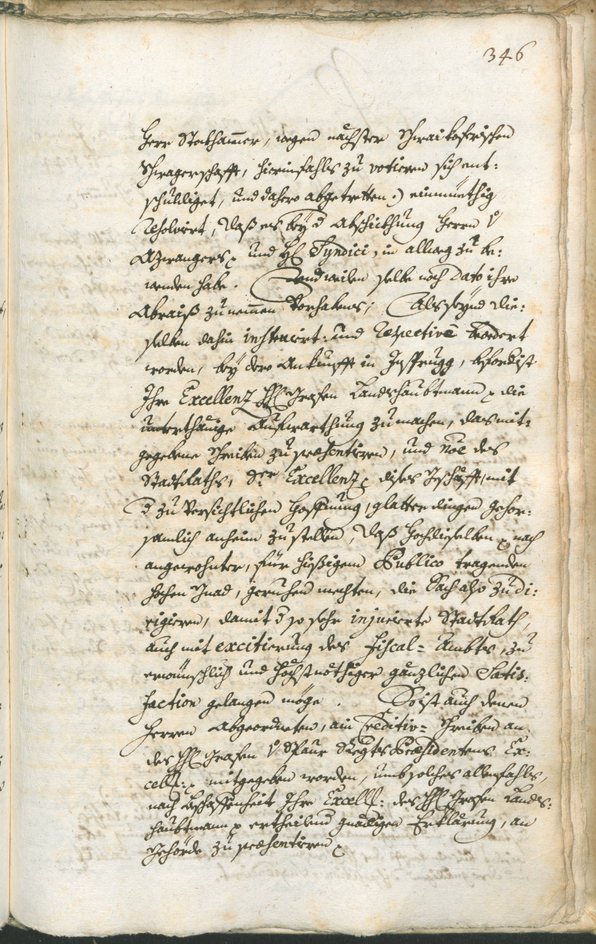 346
Herr Stockhamer, wegen nächster Schwägerschafft, hierinfahls zu votieren sich ent-
schuldiget, und dahero abgetretten:) einmüethig
resolvirt, daß es bey d Abschickhung Herrn v
Azwangers, und H: Syndici, in allweg zu be-
wenden habe. Andweilen selbe noch dato ihre
Abraiß zu nemen vorhabens; Als seynd die-
selben dahin instruirt: und respective beordert
worden, bey dero Ankunfft in Insprugg,
Ihro Excellenz Hh: Grafen Landshaubtmann die
unterthänige Aufwarthung zu machen, das mit-
gegebene Schreiben zu præsentieren, und noe des
Stadtraths, Sr Excellenz dises Gschäfft, mit
d zu versichtlichen Hoffnung, glatter dingen gehor-
samlich anheim zu stellen, daß Hochdieselben nach
angewohnter, für hießigem Publico tragenden
hochen Gnad, geruhen mechten, die Sach also zu di-
rigieren, damit d so sehr injurirte Stadtrath,
auch mit excitierung des Fiscal-Ambtes, zu
erwünschlich und höchstnöthiger gänzlichen Satis-
faction gelangen möge. So ist auch denen
Herren Abgeordneten, ain Creditiv-Schreiben an
des Hh: Grafen v Spaur Regts Præsidentens Ex-
cell: mitgegeben worden, umb solches allenfahls,
nach Beschaffenheit Ihro Excell: des Hh: Grafen Lands-
haubtmann ertheilend gnädigen Erklärung, an
Gehörde zu præsentieren